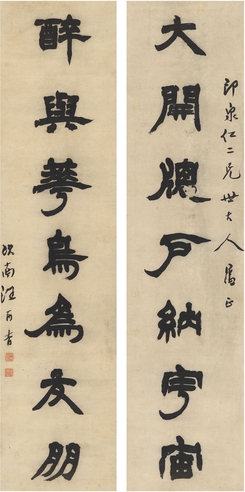 大開牕戶納宇宙
印泉仁二兄世大人屬正
醉與花鳥為友朋
歙南汪